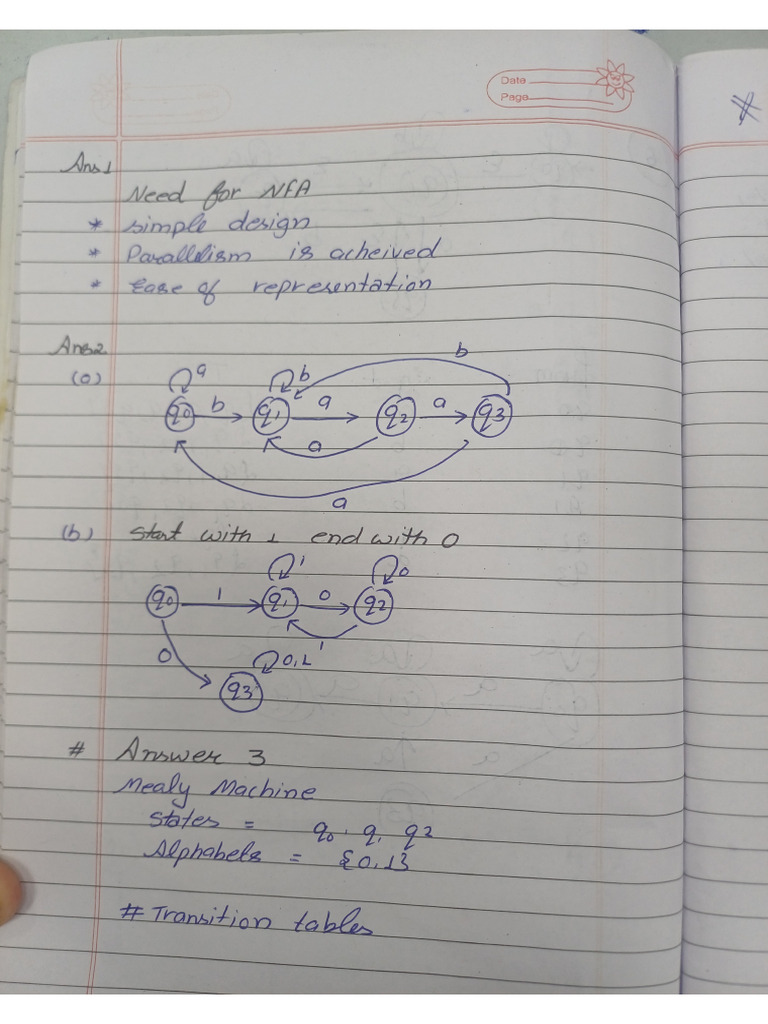 Date
Page
#
Ans 1
Need for NFA
* simple design
* Parallelism is acheived
* Ease of representation
Ans 2
(a)
b
a b
q0 b q1 a q2 a q3
a
a
(b) Start with 1 end with 0
1 0
q0 1 q1 0 q2
1
0 0,1
q3
# Answer 3
Mealy Machine
States = q0, q1 q2
Alphabets = {0,1}
# Transition tables